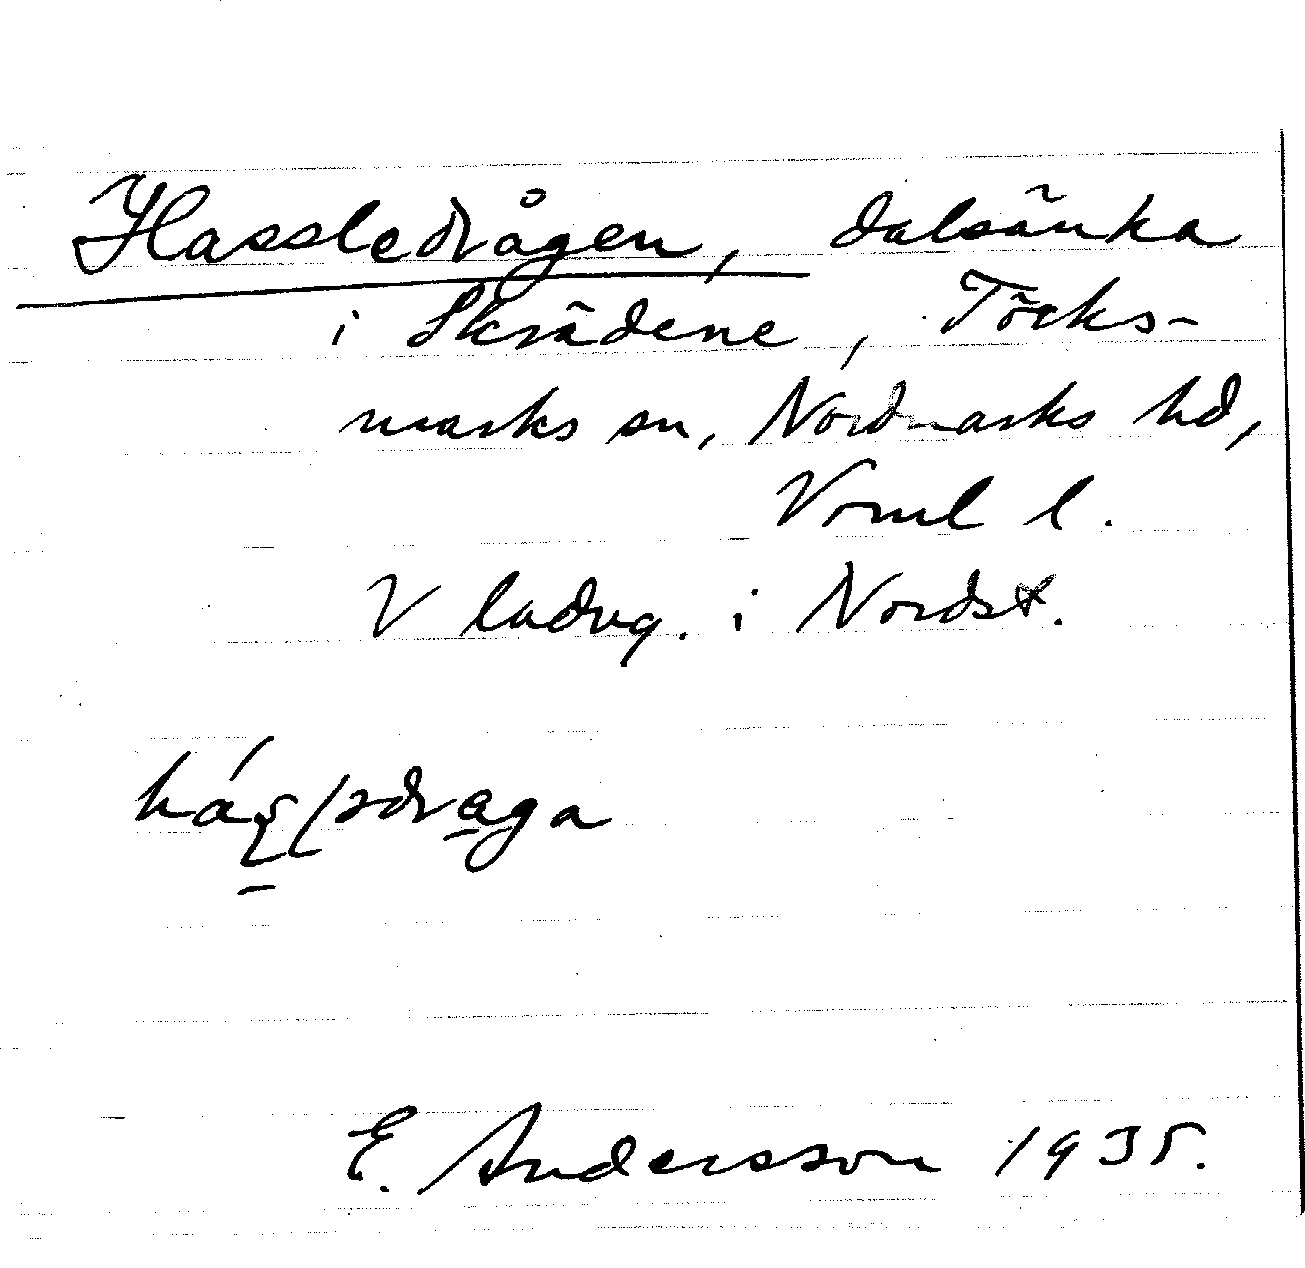 Hassledrågen, dalsänka
i Skrädene, Töcks-
marks sn, Nordmarks hd,
Vrml l.
V ladug. i Nordst.
E. Andersson 1935.